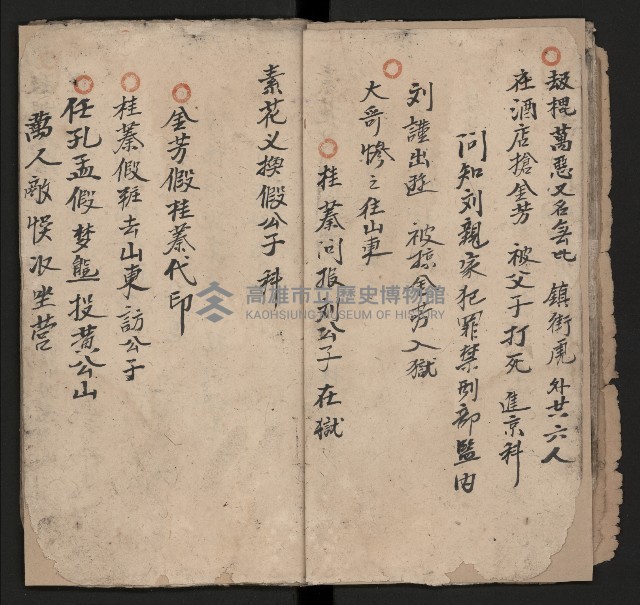 棍萬惡又名無比 鎮街虎 外廿六人
在酒店搶金芳 被父子打死 進京科
问知刘親家犯罪禁刑部監内
刘謹出遊 被掠金芳入獄
大哥慘之往山東
桂蓁问报刘公子在獄
素花义换假公子科
金芳假桂蓁代印
桂蓁假粧去山東訪公子
任孔孟假梦熊投黄公山
萬人敵悮收坐营
高雄市立歷史博物館
KAOHSIUNG MUSEUM OF HISTORY